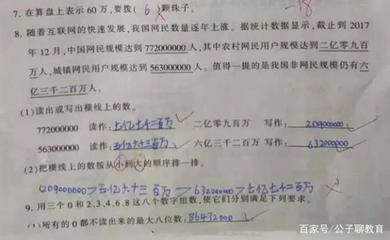 -18
7. 在算盘上表示60万,要拨( 6 )颗珠子。
8. 随着互联网的快速发展,我国网民数量逐年上涨。据统计数据显示,截止到2017
年12月,中国网民规模达到772000000人,其中农村网民用户规模达到二亿零九百
万人,城镇网民用户规模达到563000000人。值得一提的是我国非网民规模仍有六
亿三千二百万人。
(1)读出或写出横线上的数。
772000000 读作:七亿七千二百万 二亿零九百万 写作:209000000
563000000 读作:五亿六千三百万 六亿三千二百万 写作:632000000
(2)把横线上的数按从小到大的顺序排一排。
209000000>五亿六千三百万>632000000>七亿七千二百万
9. 用三个0和2、3、4、6、8这八个数字组数,使它们分别满足下列要求。
(1)所有的0都不读出来的最大八位数:86432000
百家号/公子聊教育